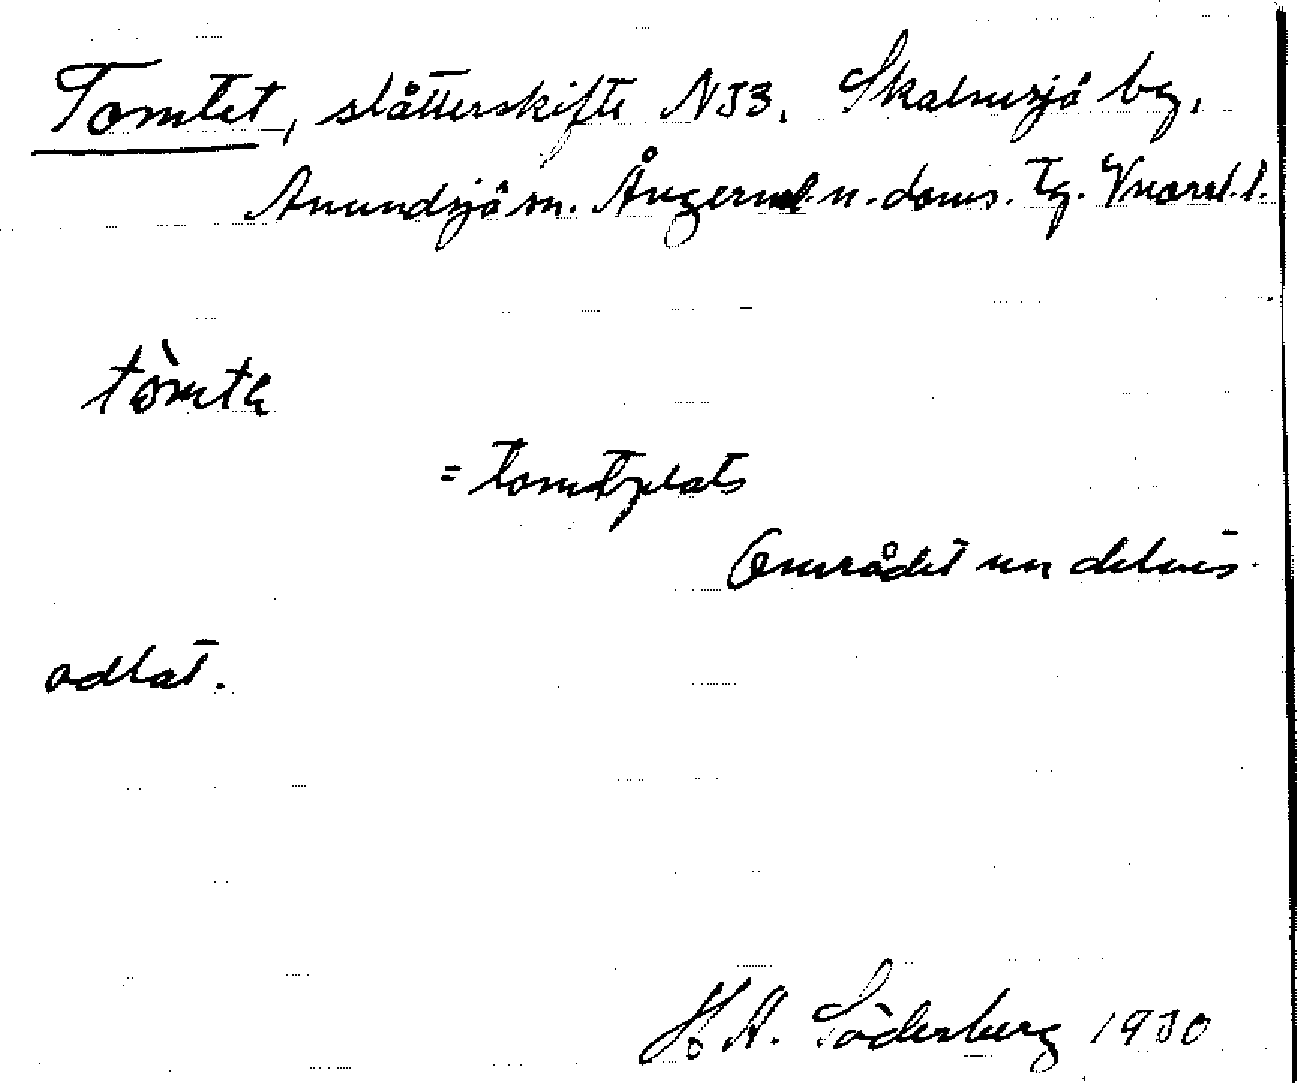 Tomtet, slåtterskifte NJ3. Skalmsjö bg.
Anundsjö sn. Ångerml. n. doms. tg. Vnorrl. l.
tòmtα
= tomtplats
Området nu delvis
odlat.
H A. Söderberg 1930